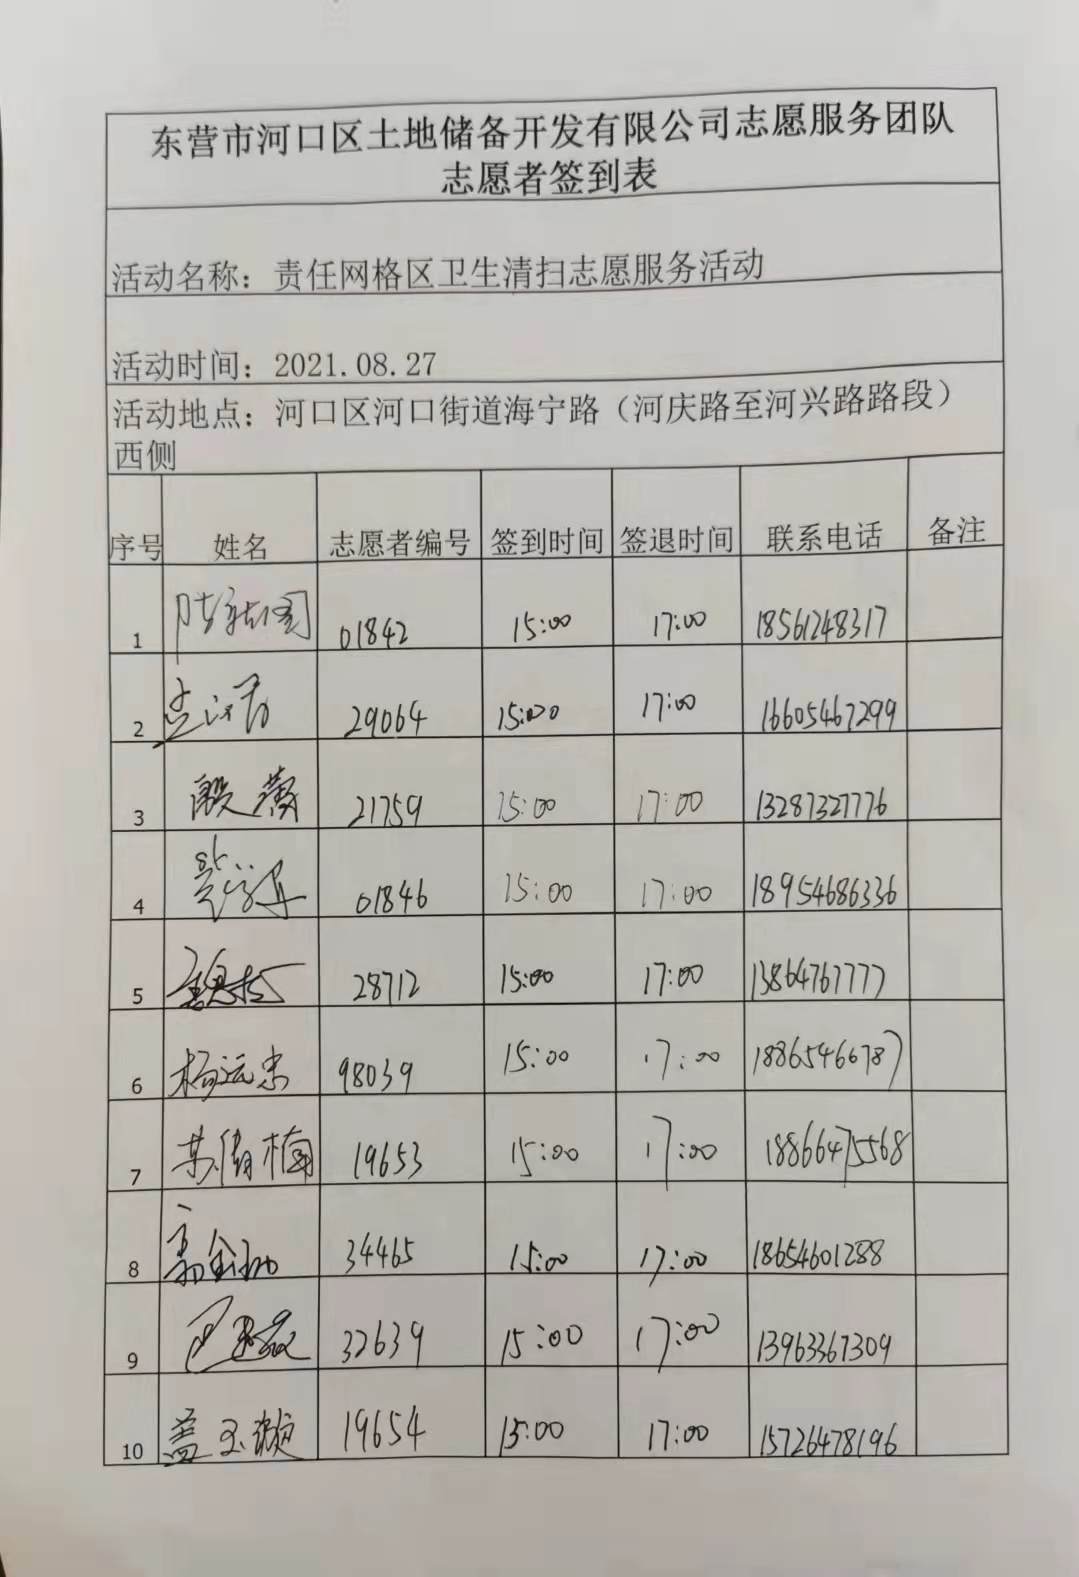 东营市河口区土地储备开发有限公司志愿服务团队
志愿者签到表
活动名称：责任网格区卫生清扫志愿服务活动
活动时间：2021.08.27
活动地点：河口区河口街道海宁路（河庆路至河兴路路段）
西侧
序号 姓名 志愿者编号 签到时间 签退时间 联系电话 备注
1 01842 15:00 17:00 18561248317
2 29064 15:00 17:00 16605467299
3 殷蕾 21759 15:00 17:00 13287327776
4 01846 15:00 17:00 18954686336
5 28712 15:00 17:00 13864767777
6 杨运忠 98039 15:00 17:00 18865466787
7 苏倩楠 19653 15:00 17:00 18866475568
8 34465 15:00 17:00 18654601288
9 32639 15:00 17:00 13963367309
10 盖玉 19654 15:00 17:00 15726478196